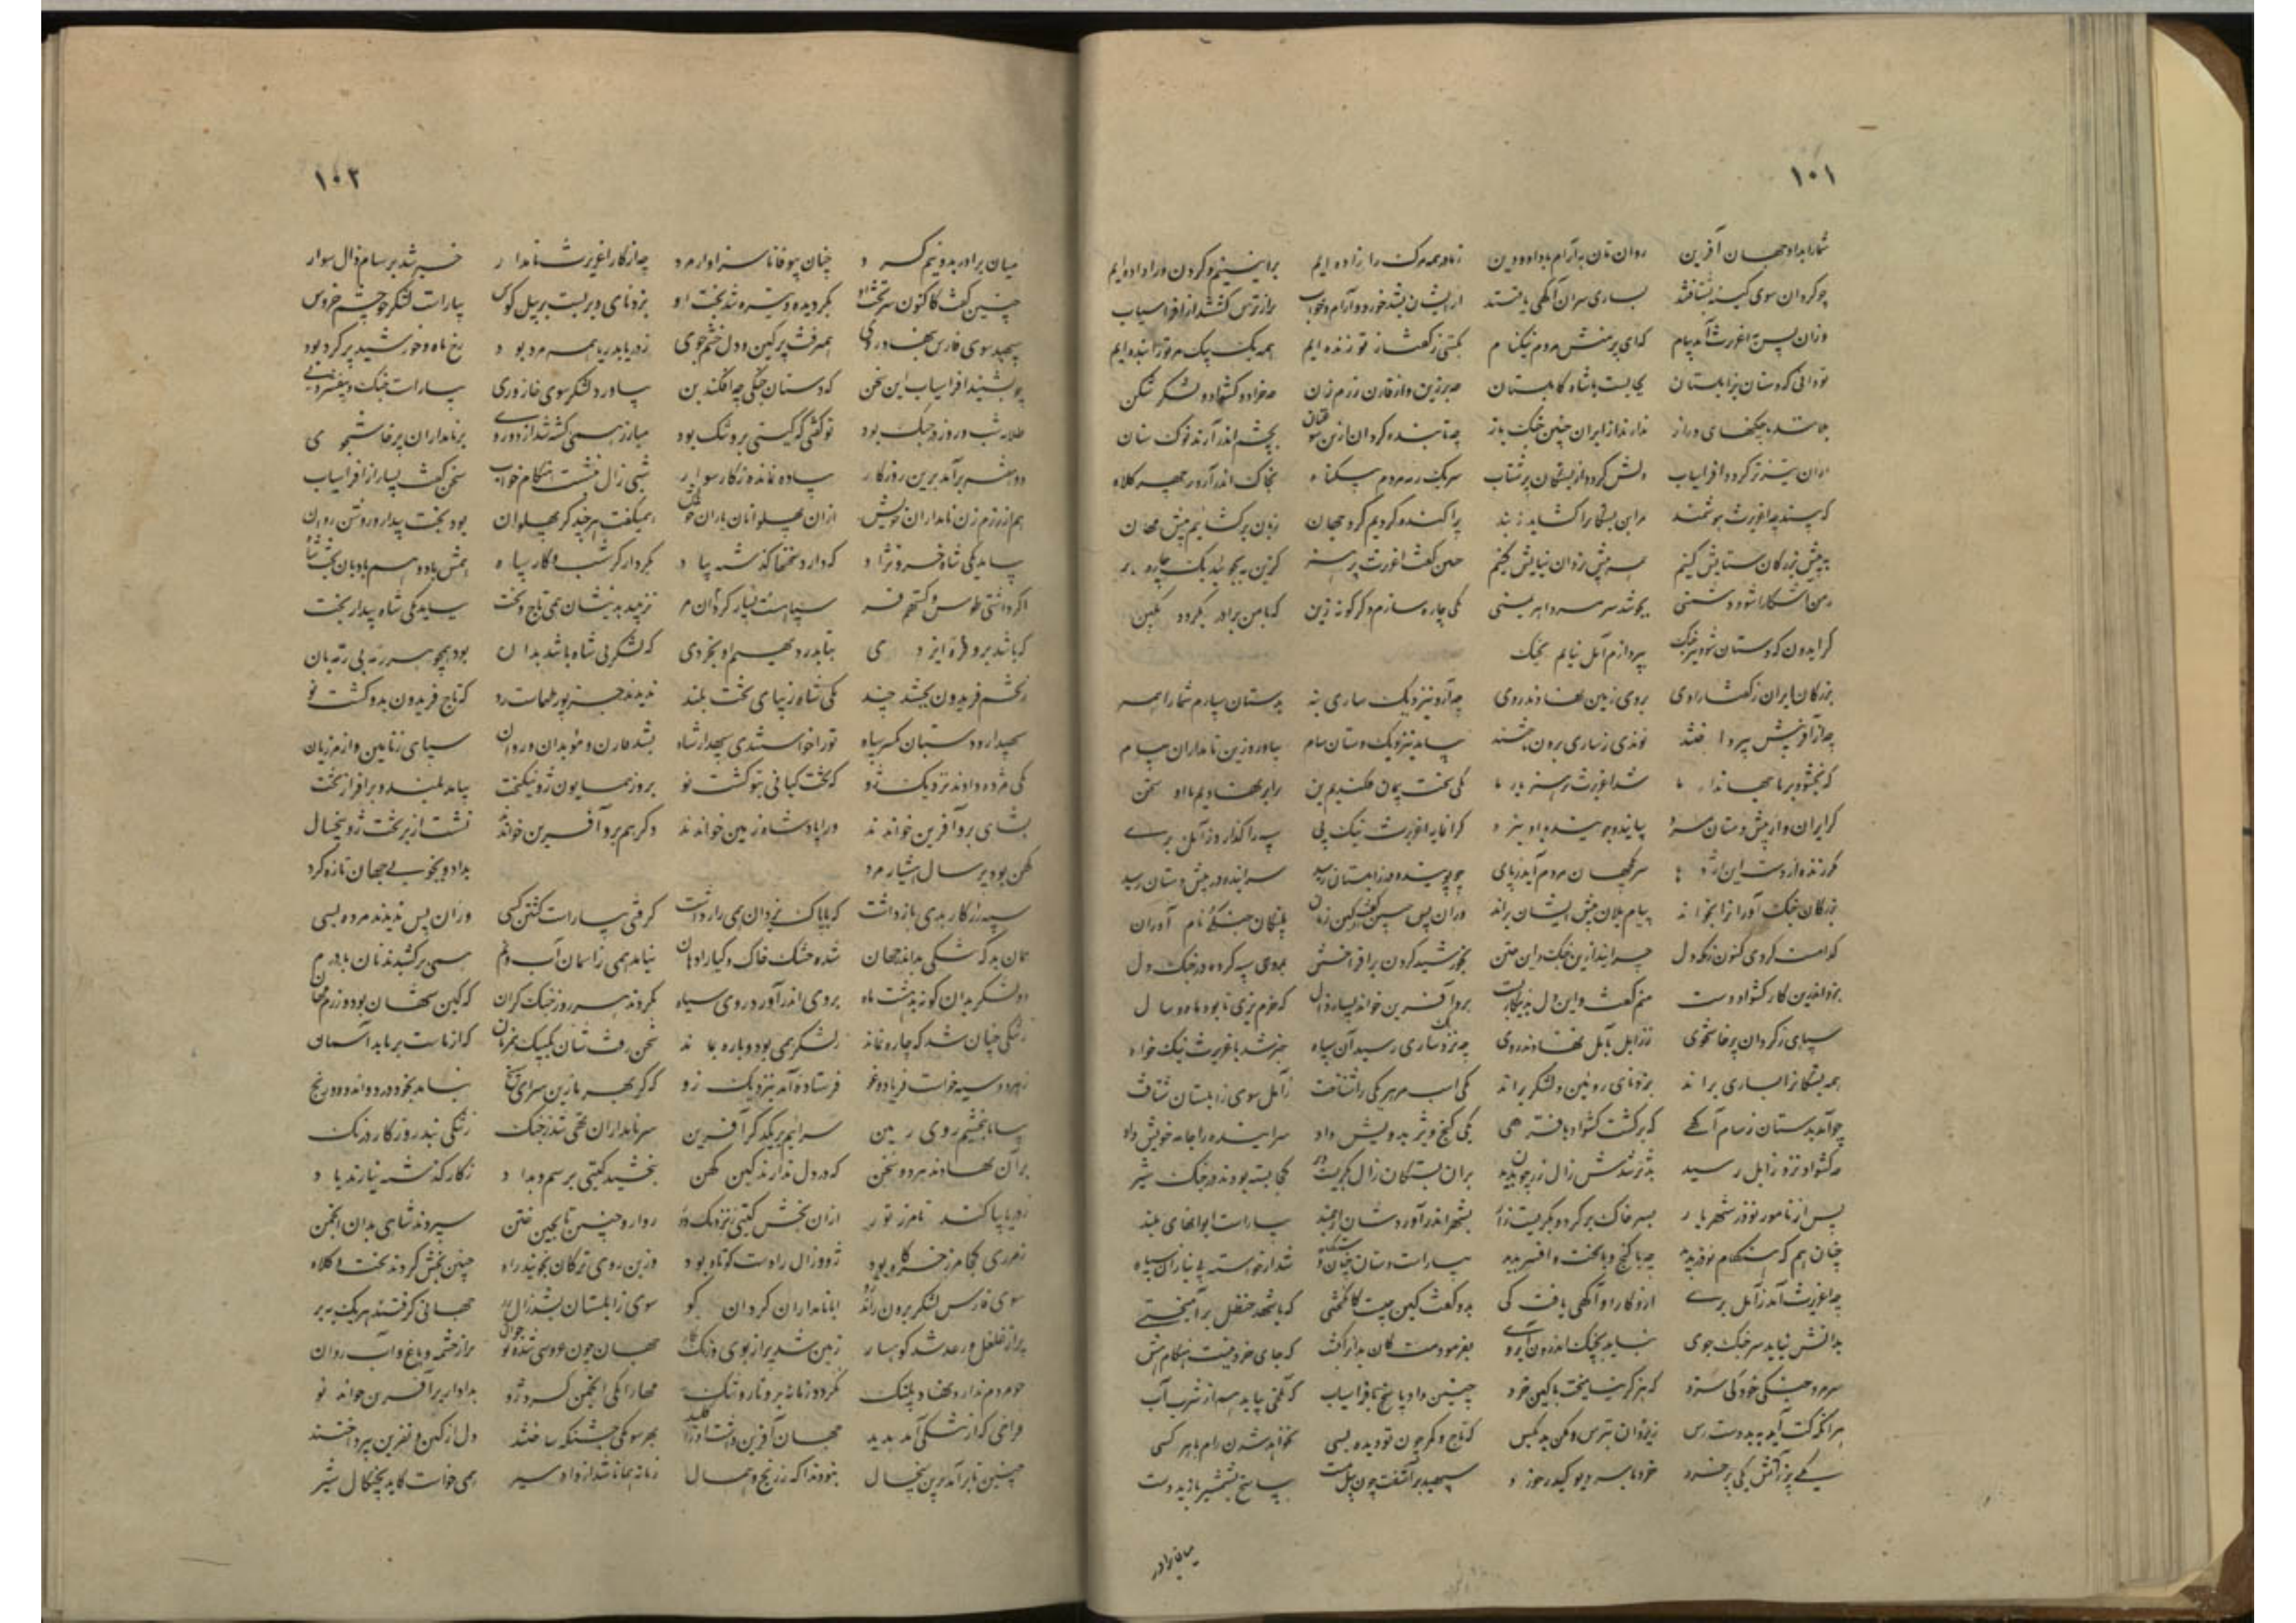 ۱۰۱
شمارا بداد جهان آفرین روان تان برآرام باداد و دین زمادر همه مرک را زاده ایم براینیم و کردن ورا داده ایم
چو کردان سوی کینه بشتافتند بساری سران آکهی یافتند ازیشان بشد خورد و آرام و خواب پراز ترس کشتند از افراسیاب
وزان پس باغریرث آمد پیام که ای پرمنش مردم نیکنام بکیتی زکفتار تو زنده ایم همه یک بیک مر ترا بنده ایم
تو دانی که دستان بزابلستان بجایست با شاه کابلستان چو برزین و از قارن رزم زن چو خراد و کشواد لشکر شکن
یلانند با چنکهای دراز ندارند از ایران چنین جنک باز چو تابنده کردان ازین سو عنان بچشم اندر آرند نوک سنان
ازان تیز کردد افراسیاب دلش کردد از بستکان پرشتاب سر یک رمه مردم بیکناه بخاک اندر آرد ز بهر کلاه
که بیند چو اغریرث هوشمند مر این بستکانرا کشاید ز بند پراکنده کردیم کرد جهان زبان برکشاییم پیش مهان
به پیش بزرکان ستایش کنیم همه پیش یزدان نیایش کنیم چنین کفت اغریرث پرهنر کزین نیابیم یک چاره بر
زمن آشکارا شود دشمنی بجوشد سر مرد اهریمنی یکی چاره سازم دکرکونه زین که بامن برادر نکردد بکین
کر ایدون که دستان شود تیزجنک بپردازم آمل نیایم بجنک
بزرکان ایران زکفتار اوی بروی زمین نهادند روی چو آرد بنزدیک ساری رمه بدستان سپارم شمارا همه
چو از آفرینش بپرداختند نوندی زساری برون تاختند بیامد بنزدیک دستان سام بیاورد زین نامداران پیام
که بخشود برما جهاندار ما شد اغریرث پرهنر یار ما یکی سخت پیمان فکندیم بن برابر نهادیم با او سخن
کز ایران و از پیش دستان مرد بیایند و جویند با او نبرد کرانمایه اغریرث نیک پی سپه را کذارد ز آمل بری
مکر زنده از دست این اژدها سر کیهان مردم آید رها چو پوینده در زابلستان رسید سراینده در پیش دستان رسید
بزرکان جنک آورانرا بخواند پیام یلان پیش ایشان براند وزان پس چنین کفت کین سروران پلنکان جنکی نام آوران
کدامست کردی کنون نیکدل سر اندازین جنک و این متن بخورشید کردن برافراختن بمردی سپه کرده در جنک دل
بزد اندرین کار کشواد دست منم کفت و این دل برینکارست برو آفرین خواند بسیار زال که خرم بزی تا بود ماه و سال
سپاهی زکردان پرخاشجوی ززابل بآمل نهادند روی چو نزد ساری رسید آن سپاه خبر شد باغریرث نیکخواه
همه بستکانرا بساری براند بزد نای رویین و لشکر براند یکی اسب مر هر یکی را بساخت ز آمل سوی زابلستان شتافت
چو آمد بدستان زسام آکهی که برکشت کشواد با فرهی یکی کنج ویژه بدرویش داد سراینده را جامه خویش داد
چو کشواد نزد زابل رسید پذیره شدش زال زر چون بدید بران بستکان زار بکریست دیر کجا بسته بودند در جنک شیر
پس از نامور نوذر شهریار بسر خاک بر کرد و بکریست زار بشهر اندر آورد شان ارجمند بیاراست ایوانهای بلند
چنان هم که هنکام نوذر بدند که با کنج و باتخت و افسر بدند بیاراست دستان چنان دستکاه شد از خواسته بی نیاز آن سپاه
چو اغریرث آمد زآمل بری ازو کار او آکهی یافت کی بدو کفت کین چیست کانکیختی که با شهد حنظل برآمیختی
بدانش نیاید سر جنک جوی نباید بجنک اندرون آبروی بفرمودمت کان بدانرا بکش که جای خرد نیست هنکام هش
سر مرد جنکی خرد کی سزد که هرکز نیامیخت باکین خرد چنین داد پاسخ بافراسیاب که لختی بباید همی شرم آب
هر انکه کت آید به بد دست رس زیزدان بترس و مکن بد بکس که تاج و کمر چون تو دیده بسی نخواهد شدن رام باهر کسی
یکی پر زآتش یکی پر خرد خرد با سر دیو کی در خورد سپهبد برآشفت چون پیل مست بپاسخ بشمشیر یازید دست
میان برادر
۱۰۲
میان برادر بدو نیم کرد چنان بیوفا ناسزاوار مرد چو از کار اغریرث نامدار خبر شد بر سام زال سوار
چنین کفت کاکنون سر تخت او بکردیده و تیره شد بخت او بزد نای و بربست بر پیل کوس بیاراست لشکر چو چشم خروس
سپهبد سوی فارس بنهاد روی همیرفت پرکین و دل خشم جوی زدریا بدریا همه مرد بود رخ ماه و خورشید پر کرد بود
چو بشنید افراسیاب این سخن که دستان جنکی چه افکند بن بیاورد لشکر سوی خار ری بیاراست جنک و بیفشرد پی
طلایه شب و روز در جنک بود تو کفتی که کیتی بروتنک بود مبارز همی کشته شد از دو روی برنامداران پرخاشجوی
دو هفته برآمد برین روزکار پیاده نمانده زکار سوار شبی زال بنشست هنکام خواب سخن کفت بسیار از افراسیاب
هم از رزم زن نامداران خویش ازان پهلوانان یاران خویش همیکفت هرچند کز پهلوان بود بخت بیدار و روشن روان
بباید یکی شاه خسرو نژاد که دارد سخنها کذشته بیاد بکردار کشتیست کار سپاه همش باد و هم بادبان تخت شاه
اکر داشتی طوس و کستهم فر سپاهست بسیار کردان مر نزیبد بدیشان همی تاج و تخت بباید یکی شاه بیدار بخت
که باشد برو فره ایزدی بتابد ز دیهیم او بخردی که لشکر بی شاه باشد بدان بود همچو هر رمه بی رمه بان
زتخم فریدون بجستند چند یکی شاه زیبای تخت بلند ندیدند جز پور طهماسپ زو که تاج فریدون بدو کشت نو
بشد قارن و موبدان و روان سپاهی زنامین و از مرزبان
یکی مژده دادند نزدیک زو که تخت کیانی بتو کشت نو سپهدار دستان یکسر سپاه ترا خواستندی سپهدار شاه
بروز همایون زو نیکبخت بیامد بلند و برافراز تخت
بشاهی برو آفرین خواندند ورا پادشاه زمین خواندند دکر هم برو آفرین خواند نشست از بر تخت زو پنجسال
کهن بود بر سال هشیار مرد بداد و بخوبی جهان تازه کرد
سپه را زکار بدی باز داشت که باپاک یزدان همی راز داشت کرفتی بیاراست کشتن کسی وزان پس ندیدند مرده بسی
همان بد که تنکی بد اندر جهان شده خشک خاک و کیا را دهان نیامد همی زآسمان آب و نم همی برکشیدند نان با درم
دو لشکر بدان کونه بد هشت ماه بروی اندر آورد روی سپاه نکردند هر روز جنک کران که کین مهشان بود و رزم کران
زتنکی چنان شد که چاره نماند زلشکر همی بود و پاره نماند سخن رفت شان یک بیک همزبان که از ماست بر ما بد آسمان
زهر دو سپه خواست فریاد و غو فرستاده آمد بنزدیک زو که کر بهر ما زین سرای سپنج نیامد بجز درد و اندوه و رنج
بیا تا ببخشیم روی زمین سراییم بر یکدکر آفرین سر نامداران تهی شد زجنک زتنکی نبد روزکار درنک
بران برنهادند هر دو سخن که در دل ندارند کین کهن ببخشید کیتی برسم و بداد زکار کذشته نیارند یاد
زدریا پیکند تا مرز تور ازان بخش کیتی بنزدیک و دور روارو چنین تا بچین ختن سپردند شاهی بدان انجمن
زمرزی کجا مرز خرکاه بود زو و زال را دست کوتاه بود وزین روی ترکان نجویند راه چنین بخش کردند تخت و کلاه
سوی فارس لشکر برون راند زو ابا نامداران کردان کو سوی زابلستان بشد زال زر جهانی کرفتند هر یک ببر
پراز غلغل و رعد شد کوهسار زمین شد پراز بوی و رنک و نکار جهان چون عروسی شده نوجوان پراز چشمه و باغ و آب روان
چو مردم ندارد نهاد پلنک نکردد زمانه برو تار و تنک مهانرا یکی انجمن کرد زو بدادار برآفرین خواند نو
فراخی که از تنکی آمد پدید جهان آفرین داشت آنرا کلید بهر سو یکی جشنکه ساختند دل از کین و نفرین بپرداختند
چنین تا برآمد برین پنجسال نبودند آکه زرنج و همال زمانه همانا شد از داد سیر همی خواست کاید بچنکال شیر